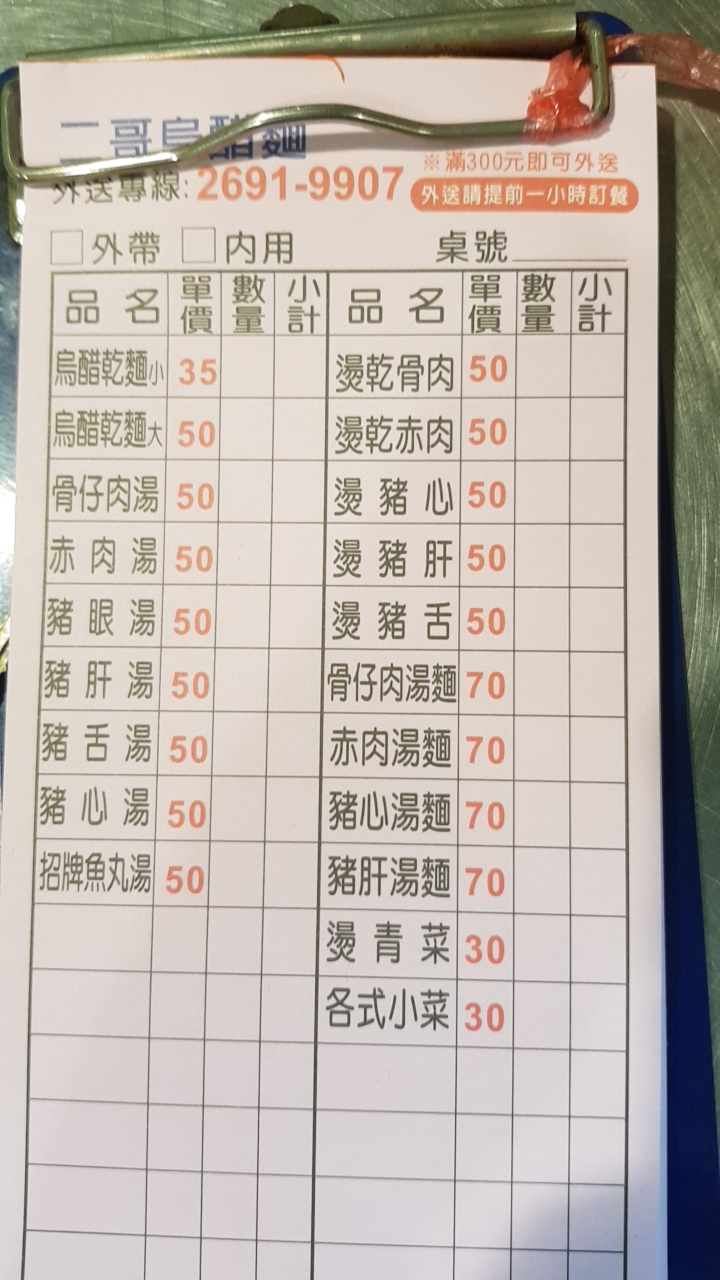 二哥烏醋麵
外送專線:2691-9907
※滿300元即可外送
外送請提前一小時訂餐
外帶 內用 桌號
品名 單價 數量 小計 品名 單價 數量 小計
烏醋乾麵小 35 燙乾骨肉 50
烏醋乾麵大 50 燙乾赤肉 50
骨仔肉湯 50 燙豬心 50
赤肉湯 50 燙豬肝 50
豬眼湯 50 燙豬舌 50
豬肝湯 50 骨仔肉湯麵 70
豬舌湯 50 赤肉湯麵 70
豬心湯 50 豬心湯麵 70
招牌魚丸湯 50 豬肝湯麵 70
燙青菜 30
各式小菜 30